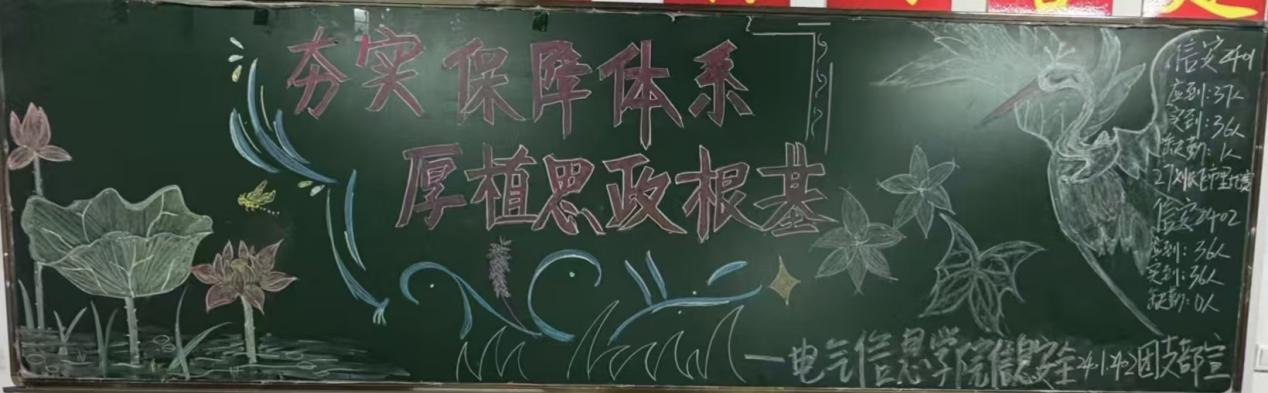 夯实保障体系
厚植思政根基
信安2401
应到:37人
实到:36人
缺勤:1人
信安2402
应到:36人
实到:36人
缺勤:0人
一电气信息学院信息安全2401.2402团支部宣